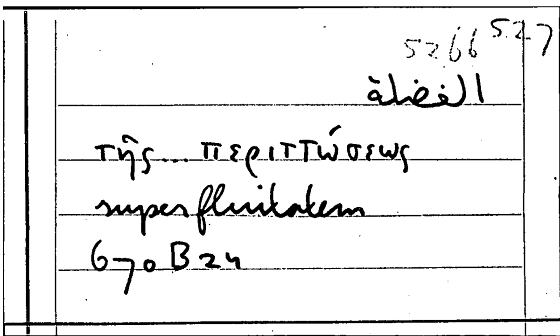 5266 527
الفضلة
τῆς... περιττώσεως
superfluitatem
670 B 24